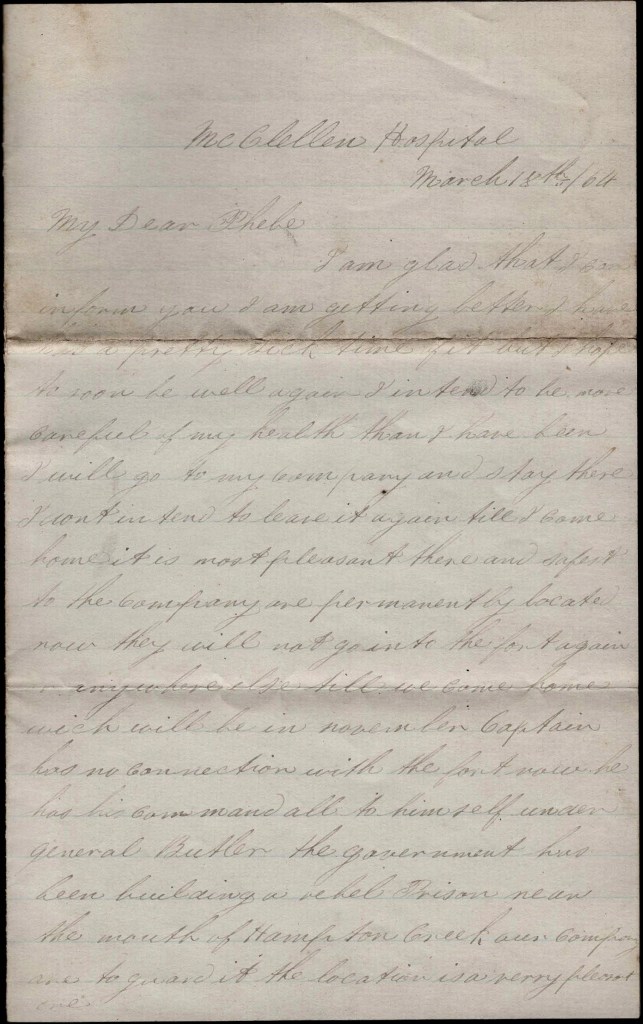 McClellen Hospital
March 18th/64
My Dear Phebe
I am glad that I can
inform you I am getting better I have
has a pretty sick time of it but I hope
to soon be well again I intend to be more
careful of my health than I have been
I will go to my company and stay there
I wont intend to leave it again till I come
home it is most pleasant there and safest
to the company are permanently located
now they will not go into the fort again
or anywhere else till we come home
wich will be in november Captain
has no connection with the fort now he
has his command all to himself under
general Butler the government has
been building a rebel Prison near
the mouth of Hampton Creek our company
are to guard it the location is a verry plesant
one